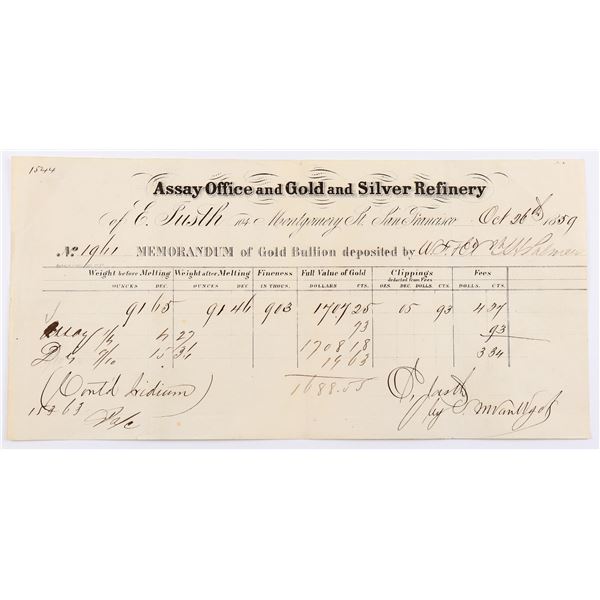 1544
Assay Office and Gold and Silver Refinery
of E. Justh 104 Montgomery St. San Francisco Oct 26th 1859
No. 1961 MEMORANDUM of Gold Bullion deposited by W.F. & Co
Weight before Melting Weight after Melting Fineness Full Value of Gold Clippings deducted from Fees Fees
OUNCES DEC OUNCES DEC IN THOUS. DOLLARS CTS. OZS. DEC. DOLLS. CTS. DOLLS. CTS.
91 65 91 46 903 1707 25 05 93 4 27
Assay 1/4 4 27 93 93
15 36 1708 18 3 34
19 63
(Contd Iridium) 1688.55
19 63 E. Justh
Pd/c by S.